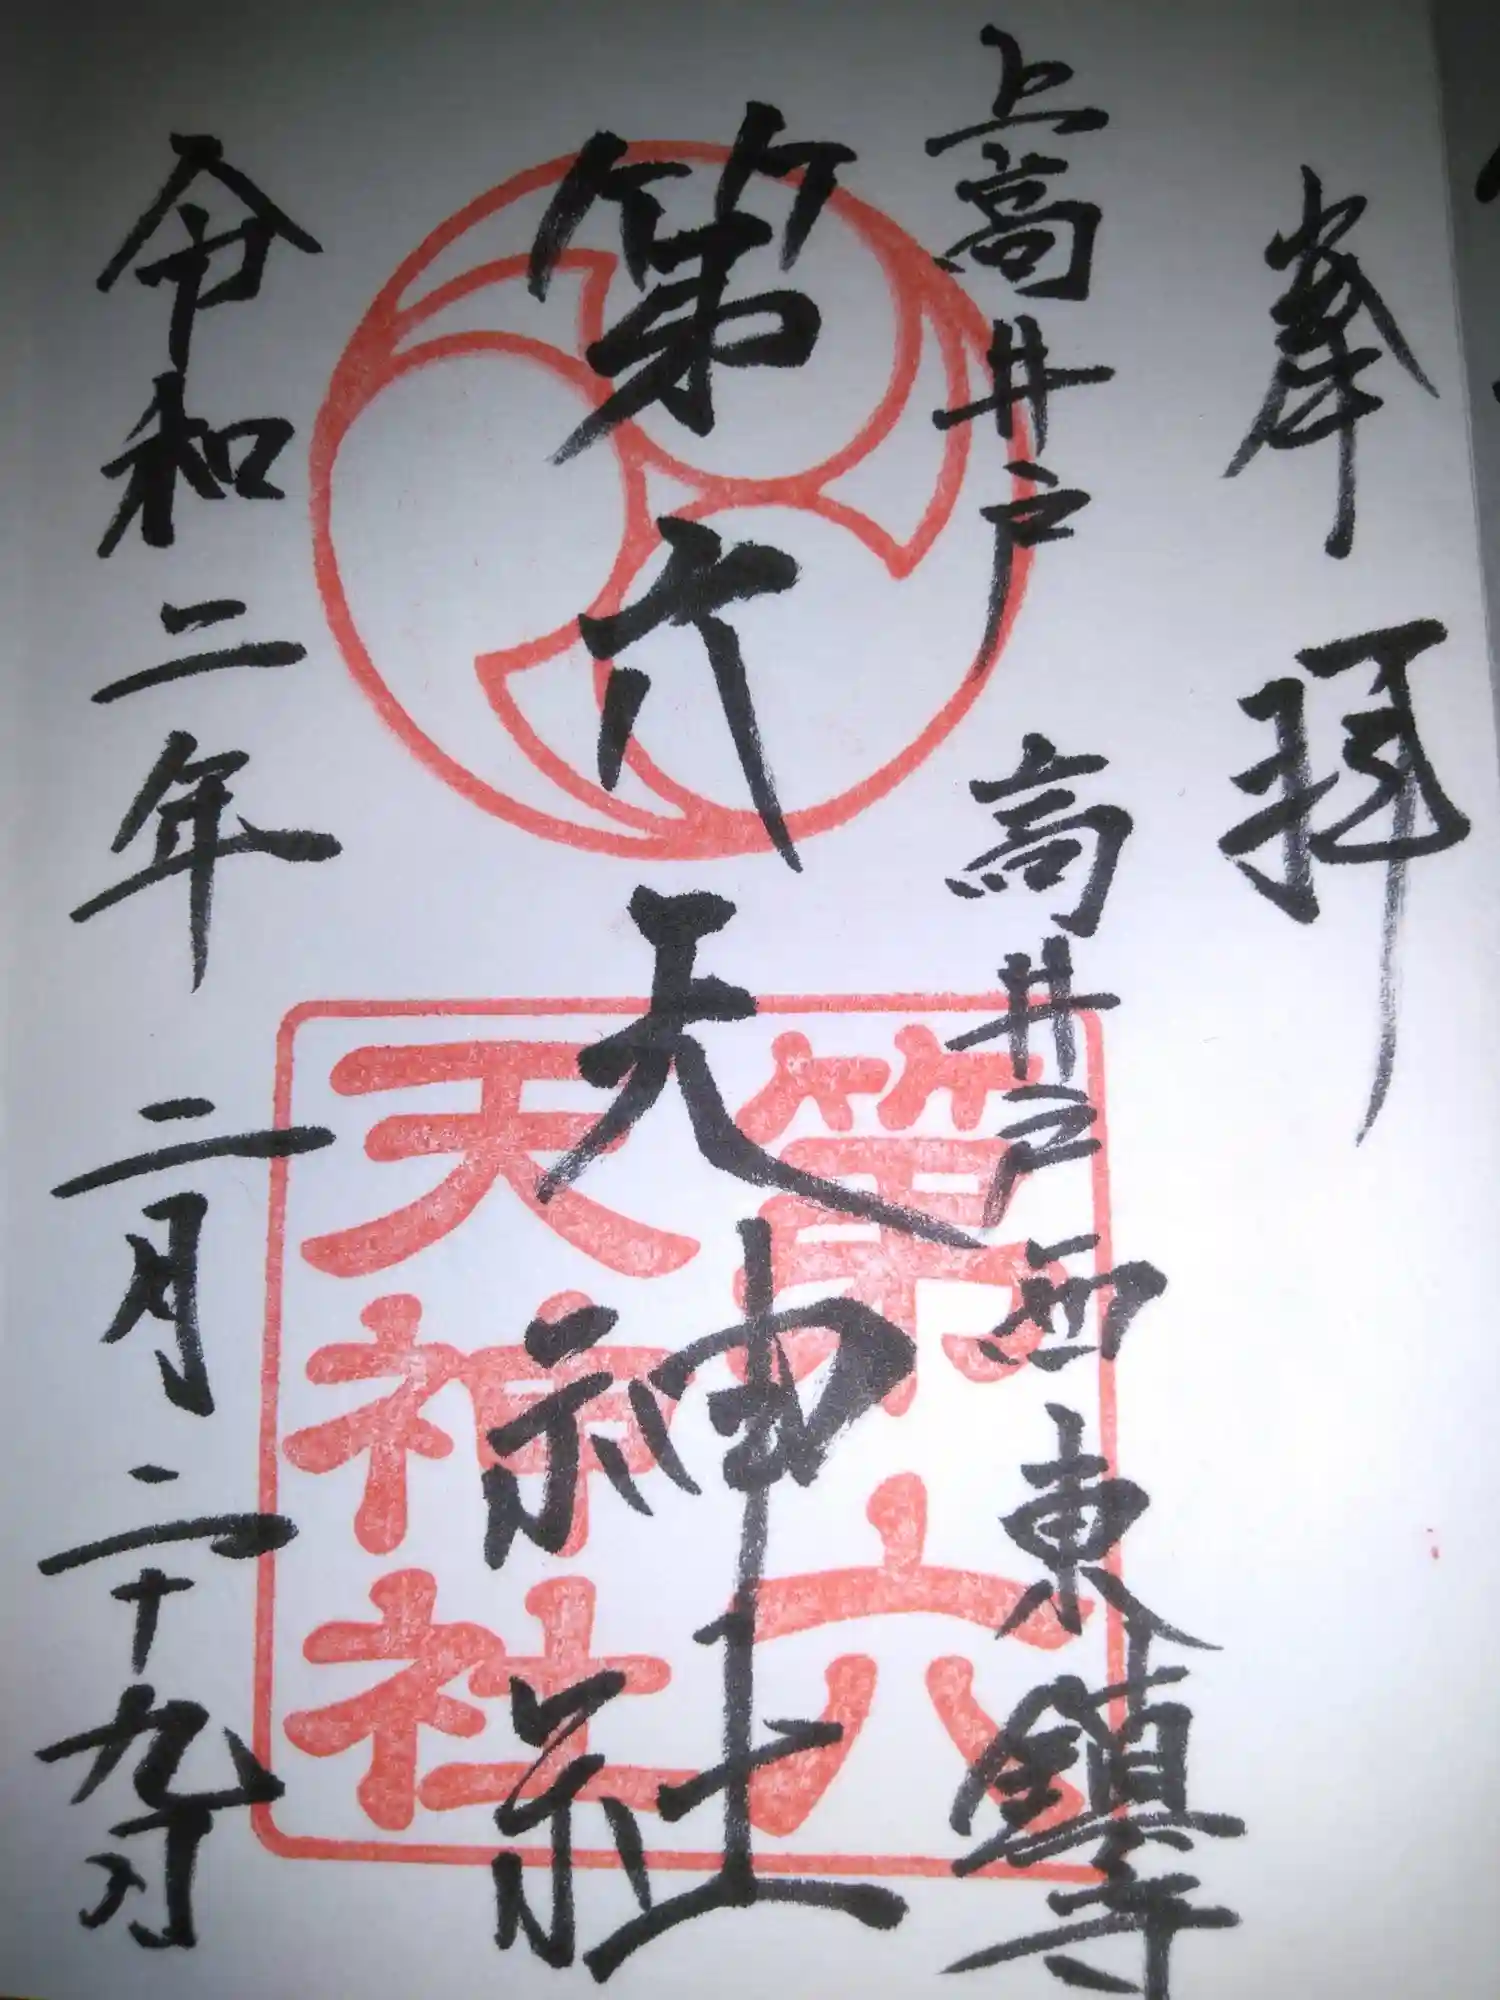 奉拝
上高井戸 高井戸西東鎮守
第六天神社
令和二年二月二十九日
第六
天神社